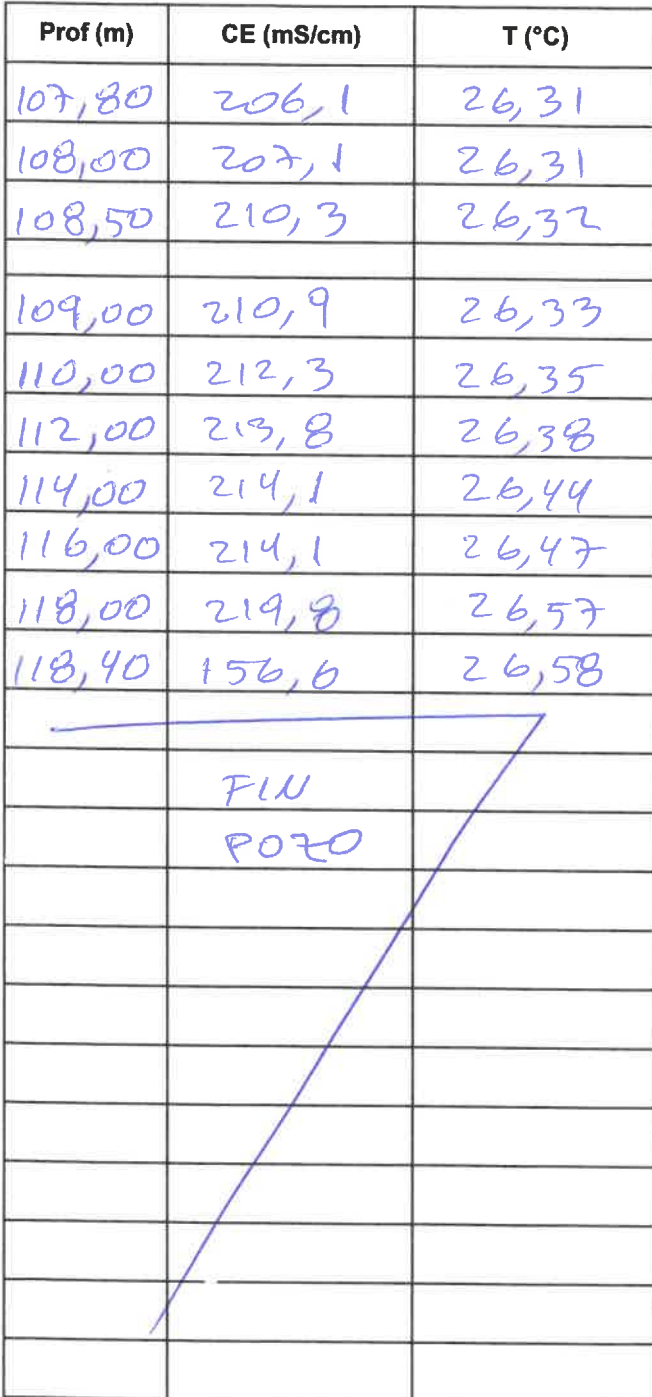 Prof (m) CE (mS/cm) T (°C)
107,80 206,1 26,31
108,00 207,1 26,31
108,50 210,3 26,32
109,00 210,9 26,33
110,00 212,3 26,35
112,00 213,8 26,38
114,00 214,1 26,44
116,00 214,1 26,47
118,00 219,8 26,57
118,40 156,6 26,58
FIN
POZO